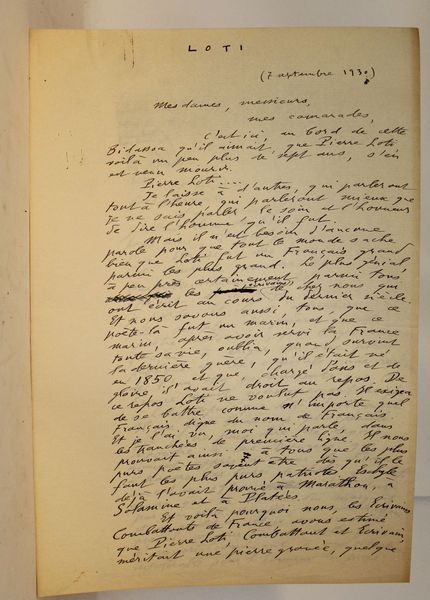 LOTI
(7 septembre 1930)
Mesdames, messieurs,
mes camarades,
C'est ici, au bord de cette
Bidassoa qu'il aimait, que Pierre Loti,
voilà un peu plus de sept ans, s'en
est venu mourir.
Pierre Loti...
Je laisse à d'autres, qui parleront
tout à l'heure, qui parleront mieux que
je ne sais parler, le soin et l'honneur
de dire l'homme qu'il fut.
Mais il n'est besoin d'aucune
parole pour que tout le monde sache
bien que Loti fut un Français grand
parmi les plus grands. Le plus génial
à peu près certainement parmi tous
les écrivains de chez nous qui
ont écrit au cours du dernier siècle.
Et nous savons aussi, tous, que ce
poète-là fut un marin, et que ce
marin, après avoir servi la France
toute sa vie, oublia, quand survint
la dernière guerre, qu'il était né
en 1850, et que, chargé d'ans et de
gloire, il avait droit au repos. De
ce repos Loti ne voulut pas. Il exigea
de se battre comme n'importe quel
Français digne du nom de Français.
Et je l'ai vu, moi qui parle, dans
les tranchées de première ligne. Il nous
prouvait ainsi à tous que les plus
purs poètes savent être dès qu'il le
faut les plus purs patriotes. Eschyle
déjà l'avait prouvé à Marathon, à
Salamine et à Platées.
Et voilà pourquoi nous, les Ecrivains
Combattants de France, avons estimé
que Pierre Loti, Combattant et Ecrivain,
méritait une pierre gravée, quelque